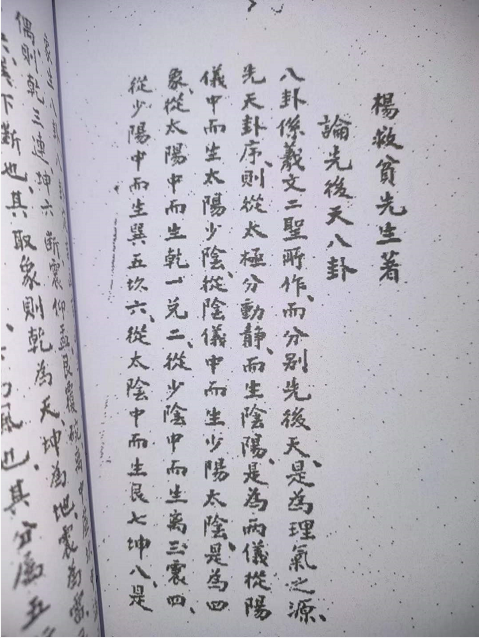 楊救貧先生著
論先後天八卦
八卦係羲文二聖所作、而分別先後天、是為理氣之源、
先天卦序、則從太極分動靜、而生陰陽、是為兩儀從陽
儀中而生太陽少陰、從陰儀中而生少陽太陰、是為四
象、從太陽中而生乾一兌二、從少陰中而生离三震四、
從少陽中而生巽五坎六、從太陰中而生艮七坤八、是
偶則乾三連坤六斷震仰盂艮覆碗离中
下斷也、其取象則乾為天、坤為地震為雷
風也其分為五